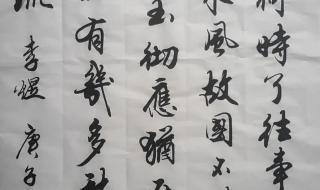 何時了往事
東風故國不
玉砌應猶
有幾多愁
流 李煜 庚子